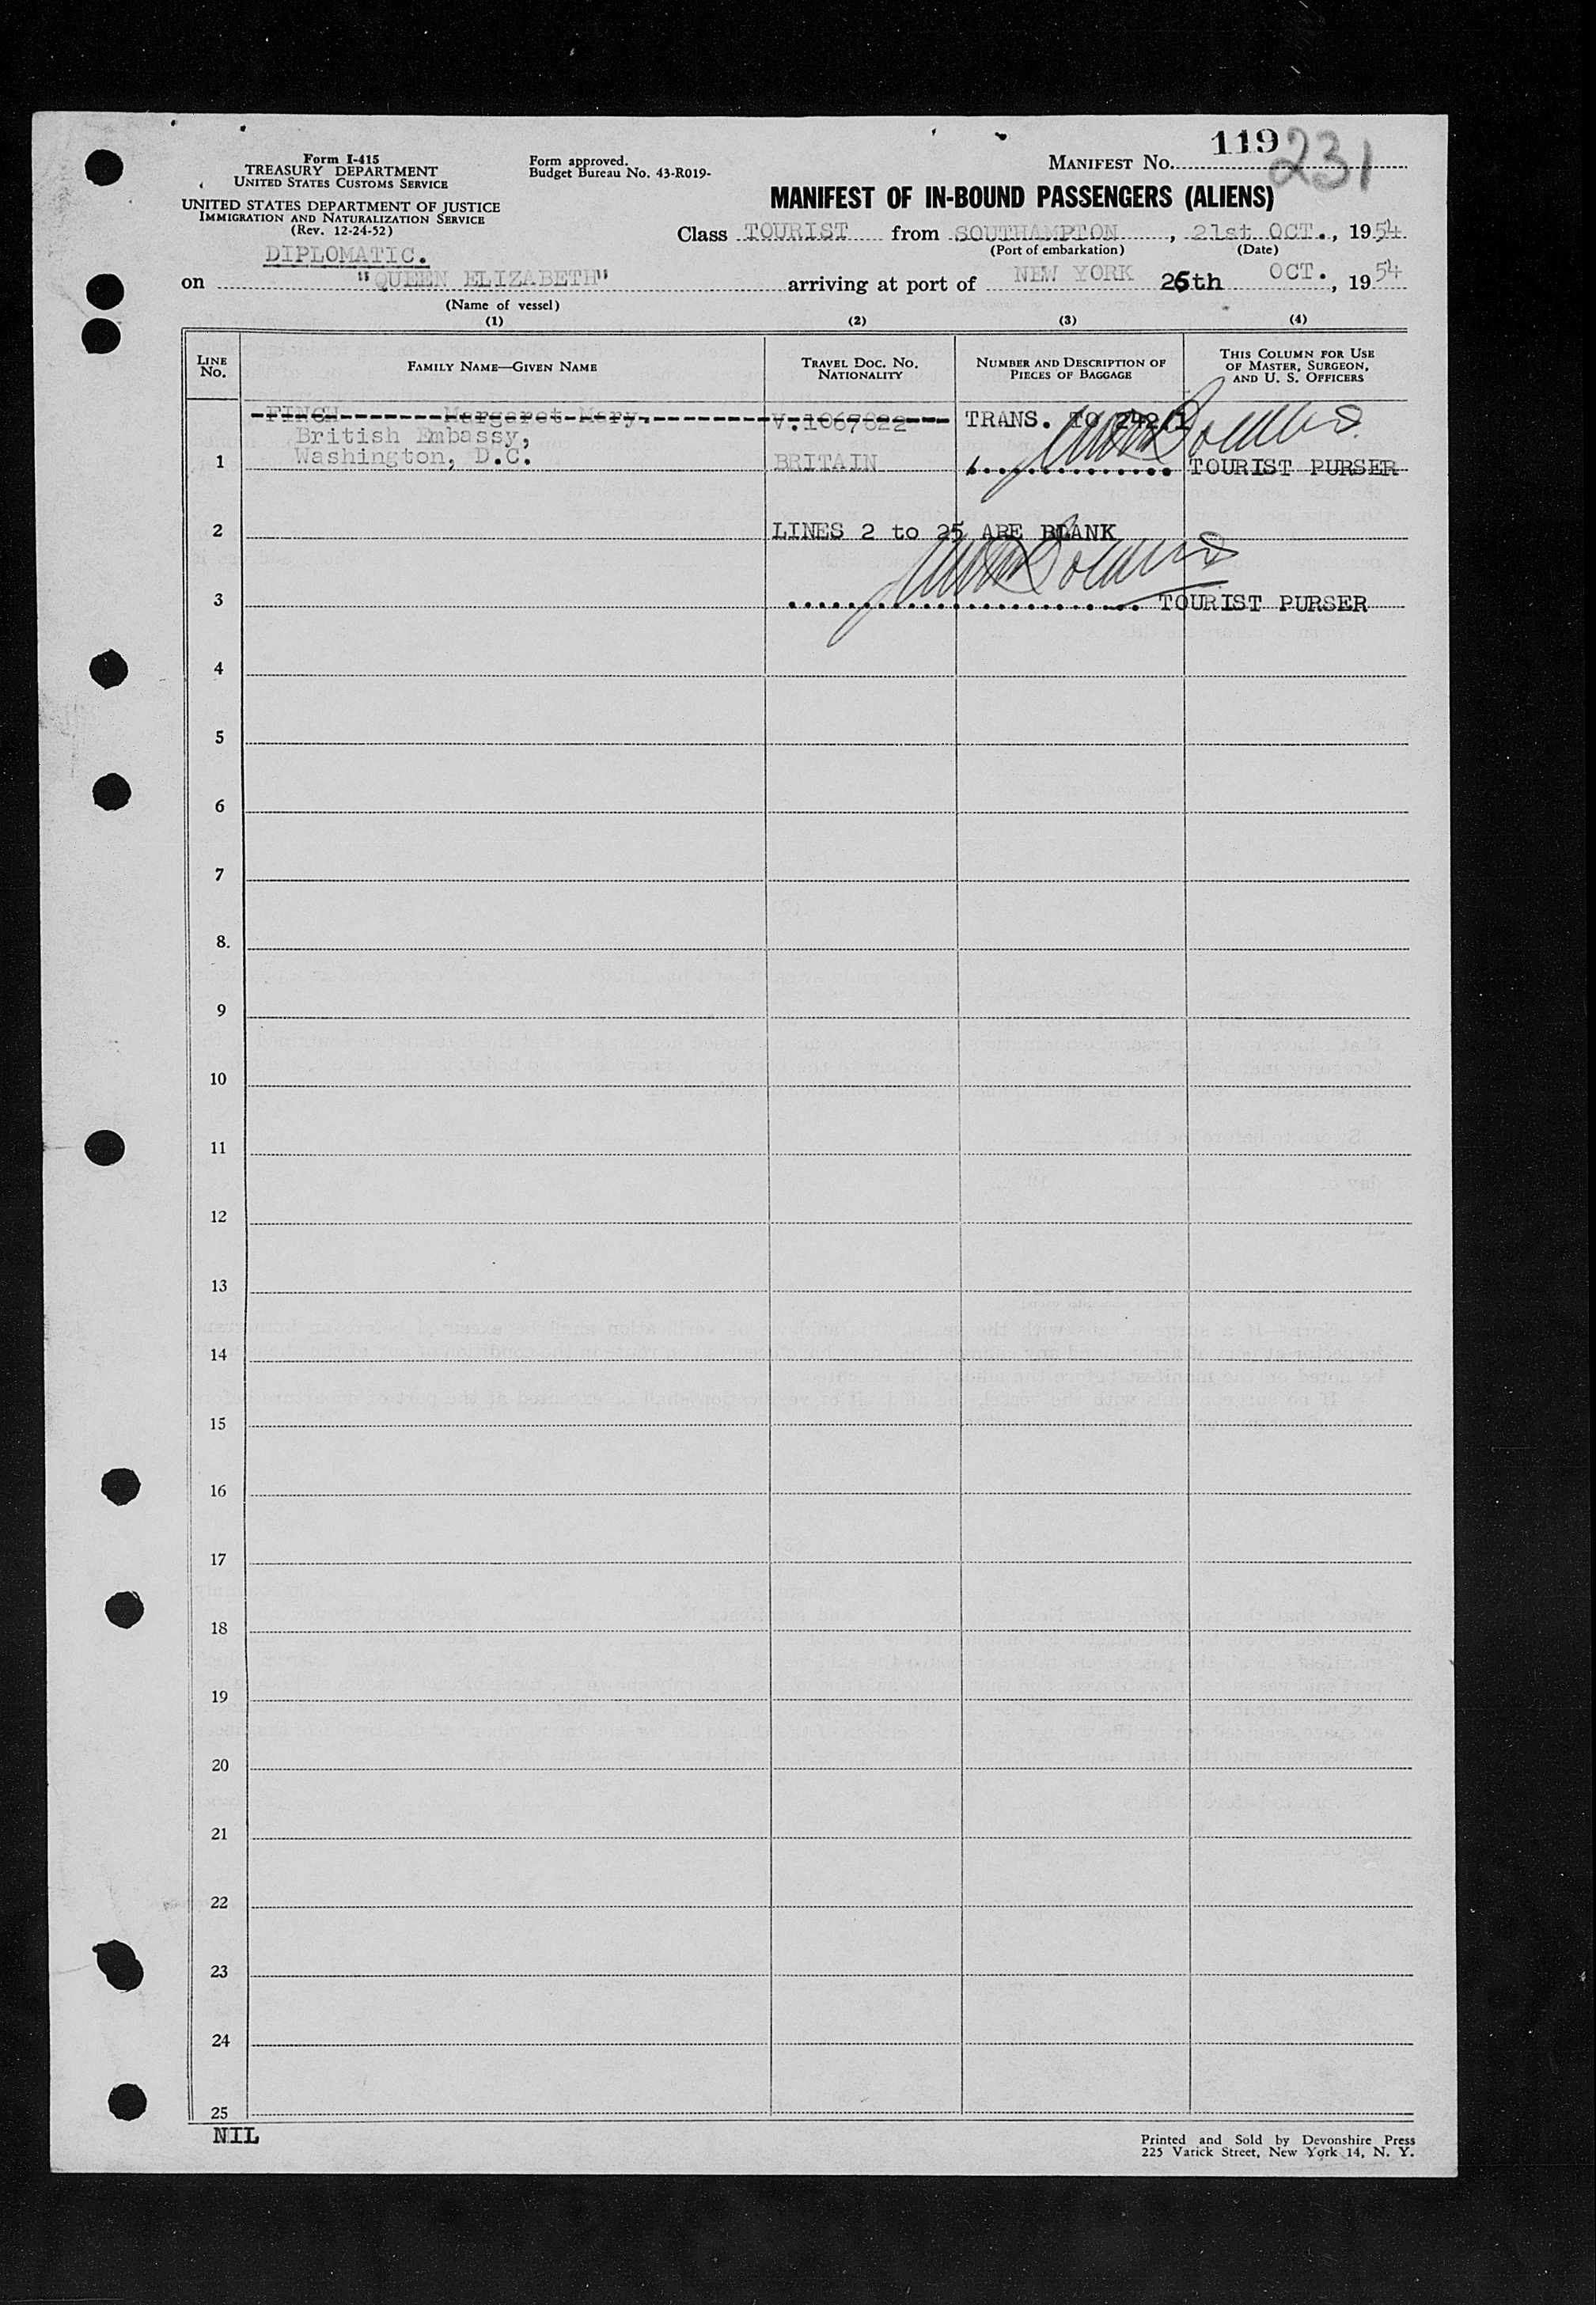 119
231
Form I-415
TREASURY DEPARTMENT
UNITED STATES CUSTOMS SERVICE
UNITED STATES DEPARTMENT OF JUSTICE
IMMIGRATION AND NATURALIZATION SERVICE
(Rev. 12-24-52)
Form approved.
Budget Bureau No. 43-R019-
MANIFEST NO.
MANIFEST OF IN-BOUND PASSENGERS (ALIENS)
Class TOURIST from SOUTHAMPTON, 21st OCT., 1954
(Port of embarkation) (Date)
DIPLOMATIC.
on "QUEEN ELIZABETH" arriving at port of NEW YORK 26th OCT., 1954
(Name of vessel)
(1) (2) (3) (4)
LINE NO. FAMILY NAME—GIVEN NAME TRAVEL DOC. NO. NATIONALITY NUMBER AND DESCRIPTION OF PIECES OF BAGGAGE THIS COLUMN FOR USE OF MASTER, SURGEON, AND U. S. OFFICERS
FINCH Margaret Mary. V.1067822 TRANS. TO 242/1
British Embassy,
1 Washington, D.C. BRITAIN TOURIST PURSER
2 LINES 2 to 25 ARE BLANK
3 TOURIST PURSER
4
5
6
7
8.
9
10
11
12
13
14
15
16
17
18
19
20
21
22
23
24
25
NIL
Printed and Sold by Devonshire Press
225 Varick Street, New York 14, N. Y.